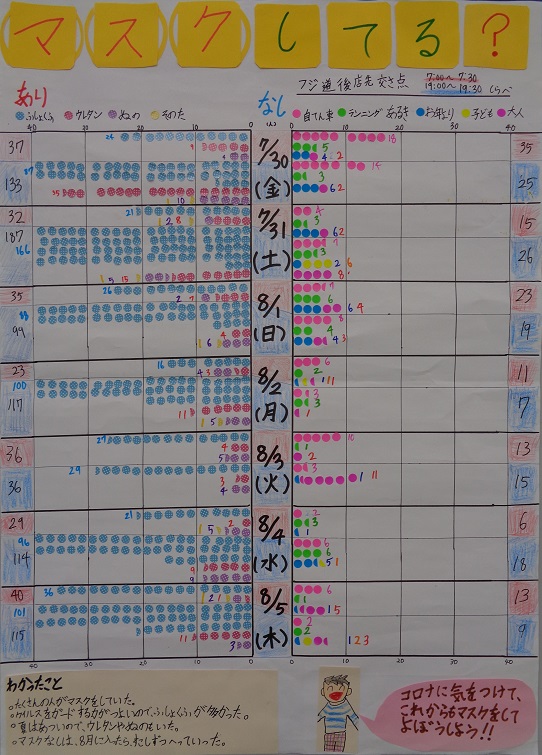 マスクしてる?
フジ道後店先交さ点 7:00〜7:30
19:00〜19:30 しらべ
あり なし
ふしょくふ ウレタン ぬの その他 (人) 自てん車 ランニング あるき お年より 子ども 大人
40 30 20 10 0 0 10 20 30 40
37 7/30 35
133 (金) 25
32 7/31 15
187 (土) 26
166
35 8/1 23
99 (日) 19
23 8/2 11
100
117 (月) 7
36 8/3 13
36 (火) 15
29 8/4 6
96
114 (水) 18
40 8/5 13
101
115 (木) 9
40 30 20 10 0 0 10 20 30 40
わかったこと
○たくさんの人がマスクをしていた。
○ウイルスをガードする力がつよいので、ふしょくふが多かった。
○夏はあついので、ウレタンやぬのもいた。
○マスクなしは、8月に入ったら、すこしずつへっていった。
コロナに気をつけて、
これからもマスクをして
よぼうしよう!!